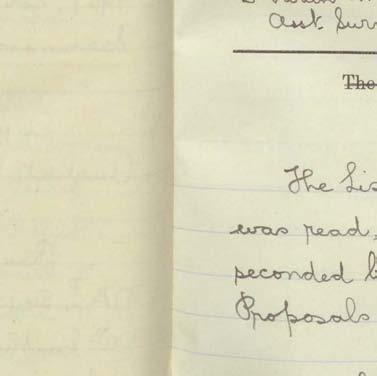 Asst. Sur
The
The Lis
was read,
seconded b
Proposals